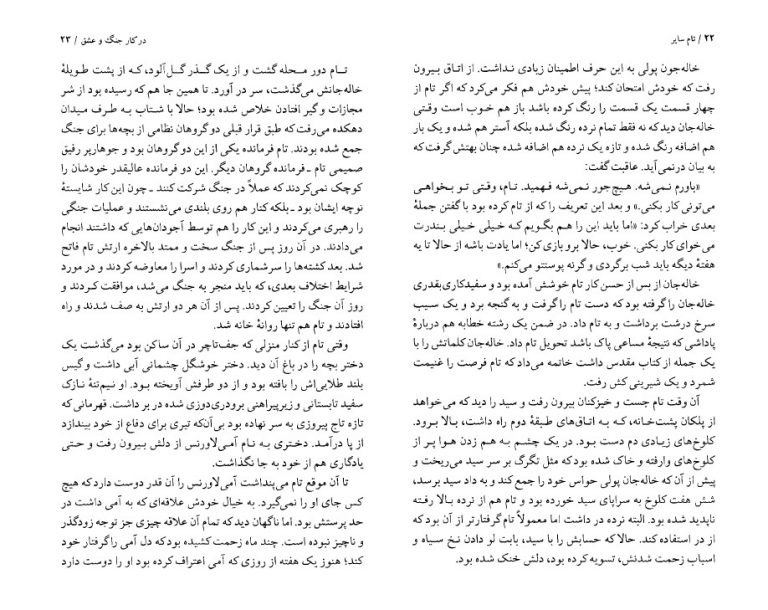 ۲۲ / تام سایر
خاله‌جون پولی به این حرف اطمینان زیادی نداشت. از اتاق بیرون
رفت که خودش امتحان کند؛ پیش خودش هم فکر می‌کرد که اگر تام از
چهار قسمت یک قسمت را رنگ کرده باشد باز هم خوب است وقتی
خاله‌جان دید که نه فقط تمام نرده رنگ شده بلکه آستر هم شده و یک بار
هم اضافه رنگ شده و تازه یک نرده هم اضافه شده چنان بهتش گرفت که
به بیان درنمی‌آید. عاقبت گفت:
«باورم نمی‌شه. هیچ‌جور نمی‌شه فهمید. تام، وقتی تو بخواهی
می‌تونی کار بکنی.» و بعد این تعریف را که از تام کرده بود با گفتن جملهٔ
بعدی خراب کرد: «اما باید این را هم بگویم که خیلی خیلی بندرت
می‌خوای کار بکنی. خوب، حالا برو بازی کن؛ اما یادت باشه از حالا تا یه
هفتهٔ دیگه باید شب برگردی و گرنه پوستتو می‌کنم.»
خاله‌جان از بس از حسن کار تام خوشش آمده بود و سفیدکاری‌بقدری
خاله‌جان را گرفته بود که دست تام را گرفت و به گنجه برد و یک سیب
سرخ درشت برداشت و به تام داد. در ضمن یک رشته خطابه هم دربارهٔ
پاداشی که نتیجهٔ مساعی پاک باشد تحویل تام داد. خاله‌جان کلماتش را با
یک جمله از کتاب مقدس داشت خاتمه می‌داد که تام فرصت را غنیمت
شمرد و یک شیرینی کش رفت.
آن وقت تام جست و خیزکنان بیرون رفت و سید را دید که می‌خواهد
از پلکان پشت‌خانه، که به اتاق‌های طبقهٔ دوم راه داشت، بالا برود.
کلوخ‌های زیادی دم دست بود. در یک چشم به هم زدن هوا پر از
کلوخ‌های وارفته و خاک شده بود که مثل تگرگ بر سر سید می‌ریخت و
پیش از آن که خاله‌جان پولی حواس خود را جمع کند و به داد سید برسد،
شش هفت کلوخ به سراپای سید خورده بود و تام هم از نرده بالا رفته
ناپدید شده بود. البته نرده در داشت اما معمولاً تام گرفتارتر از آن بود که
از در استفاده کند. حالا که حسابش را با سید، بابت لو دادن نخ سیاه و
اسباب زحمت شدنش، تسویه کرده بود، دلش خنک شده بود.
در کار جنگ و عشق / ۲۳
تام دور محله گشت و از یک گذر گل‌آلود، که از پشت طویلهٔ
خاله‌جانش می‌گذشت، سر در آورد. تا همین جا هم که رسیده بود از شر
مجازات و گیر افتادن خلاص شده بود؛ حالا با شتاب به طرف میدان
دهکده می‌رفت که طبق قرار قبلی دو گروهان نظامی از بچه‌ها برای جنگ
جمع شده بودند. تام فرمانده یکی از این دو گروهان بود و جوهارپر رفیق
صمیمی تام ـ فرمانده گروهان دیگر. این دو فرمانده عالیقدر خودشان را
کوچک نمی‌کردند که عملاً در جنگ شرکت کنند ـ چون این کار شایستهٔ
نوچه ایشان بود ـ بلکه کنار هم روی بلندی می‌نشستند و عملیات جنگی
را رهبری می‌کردند و این کار را هم توسط آجودان‌هایی که داشتند انجام
می‌دادند. در آن روز پس از جنگ سخت و ممتد بالاخره ارتش تام فاتح
شد. بعد کشته‌ها را سرشماری کردند و اسرا را معاوضه کردند و در مورد
شرایط اختلاف بعدی، که باید منجر به جنگ می‌شد، موافقت کردند و
روز آن جنگ را تعیین کردند. پس از آن هر دو ارتش به صف شدند و راه
افتادند و تام هم تنها روانهٔ خانه شد.
وقتی تام از کنار منزلی که جف‌تاچر در آن ساکن بود می‌گذشت یک
دختر بچه را در باغ آن دید. دختر خوشگل چشمانی آبی داشت و گیس
بلند طلایی‌اش را بافته بود و از دو طرفش آویخته بود. او نیم‌تنهٔ نازک
سفید تابستانی و زیرپیراهنی برودری‌دوزی شده در بر داشت. قهرمانی که
تازه تاج پیروزی به سر نهاده بود بی‌آن‌که تیری برای دفاع از خود بیندازد
از پا درآمد. دختری به نام آمی‌لاورنس از دلش بیرون رفت و حتی
یادگاری هم از خود به جا نگذاشت.
تا آن موقع تام می‌پنداشت آمی‌لاورنس را آن قدر دوست دارد که هیچ
کس جای او را نمی‌گیرد. به خیال خودش علاقه‌ای که به آمی داشت در
حد پرستش بود. اما ناگهان دید که تمام آن علاقه چیزی جز توجه زودگذر
و ناچیز نبوده است. چند ماه زحمت کشیده بود که دل آمی را گرفتار خود
کند؛ هنوز یک هفته از روزی که آمی اعتراف کرده بود او را دوست دارد